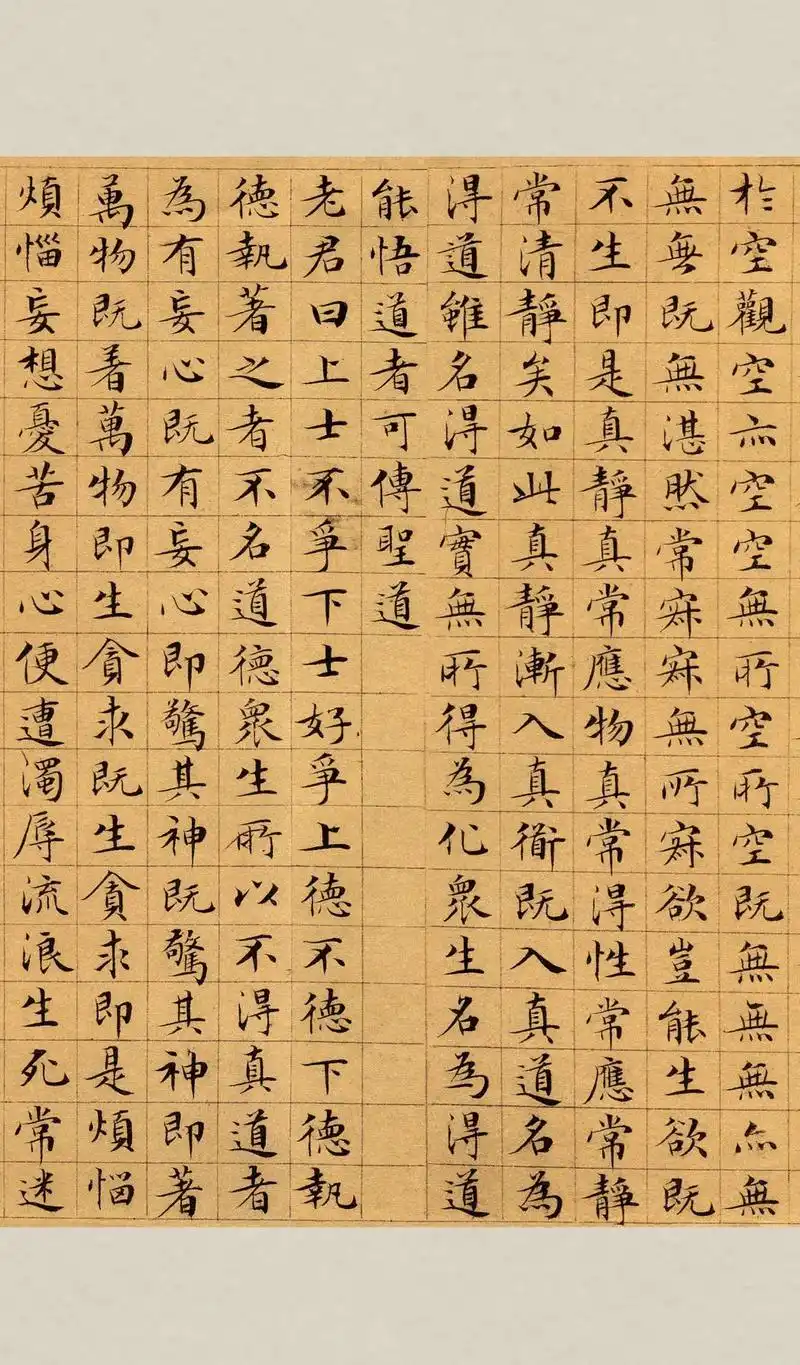 於空觀空亦空空無所空所空既無無無亦無
無無既無湛然常寂寂無所寂欲豈能生欲既
不生即是真靜真常應物真常得性常應常靜
常清靜矣如此真靜漸入真衜既入真道名為
得道雖名得道實無所得為化衆生名為得道
能悟道者可傳聖道
老君曰上士不爭下士好爭上德不德下德執
德執著之者不名道德衆生所以不得真道者
為有妄心既有妄心即驚其神既驚其神即著
萬物既着萬物即生貪求既生貪求即是煩惱
煩惱妄想憂苦身心便遭濁辱流浪生死常迷